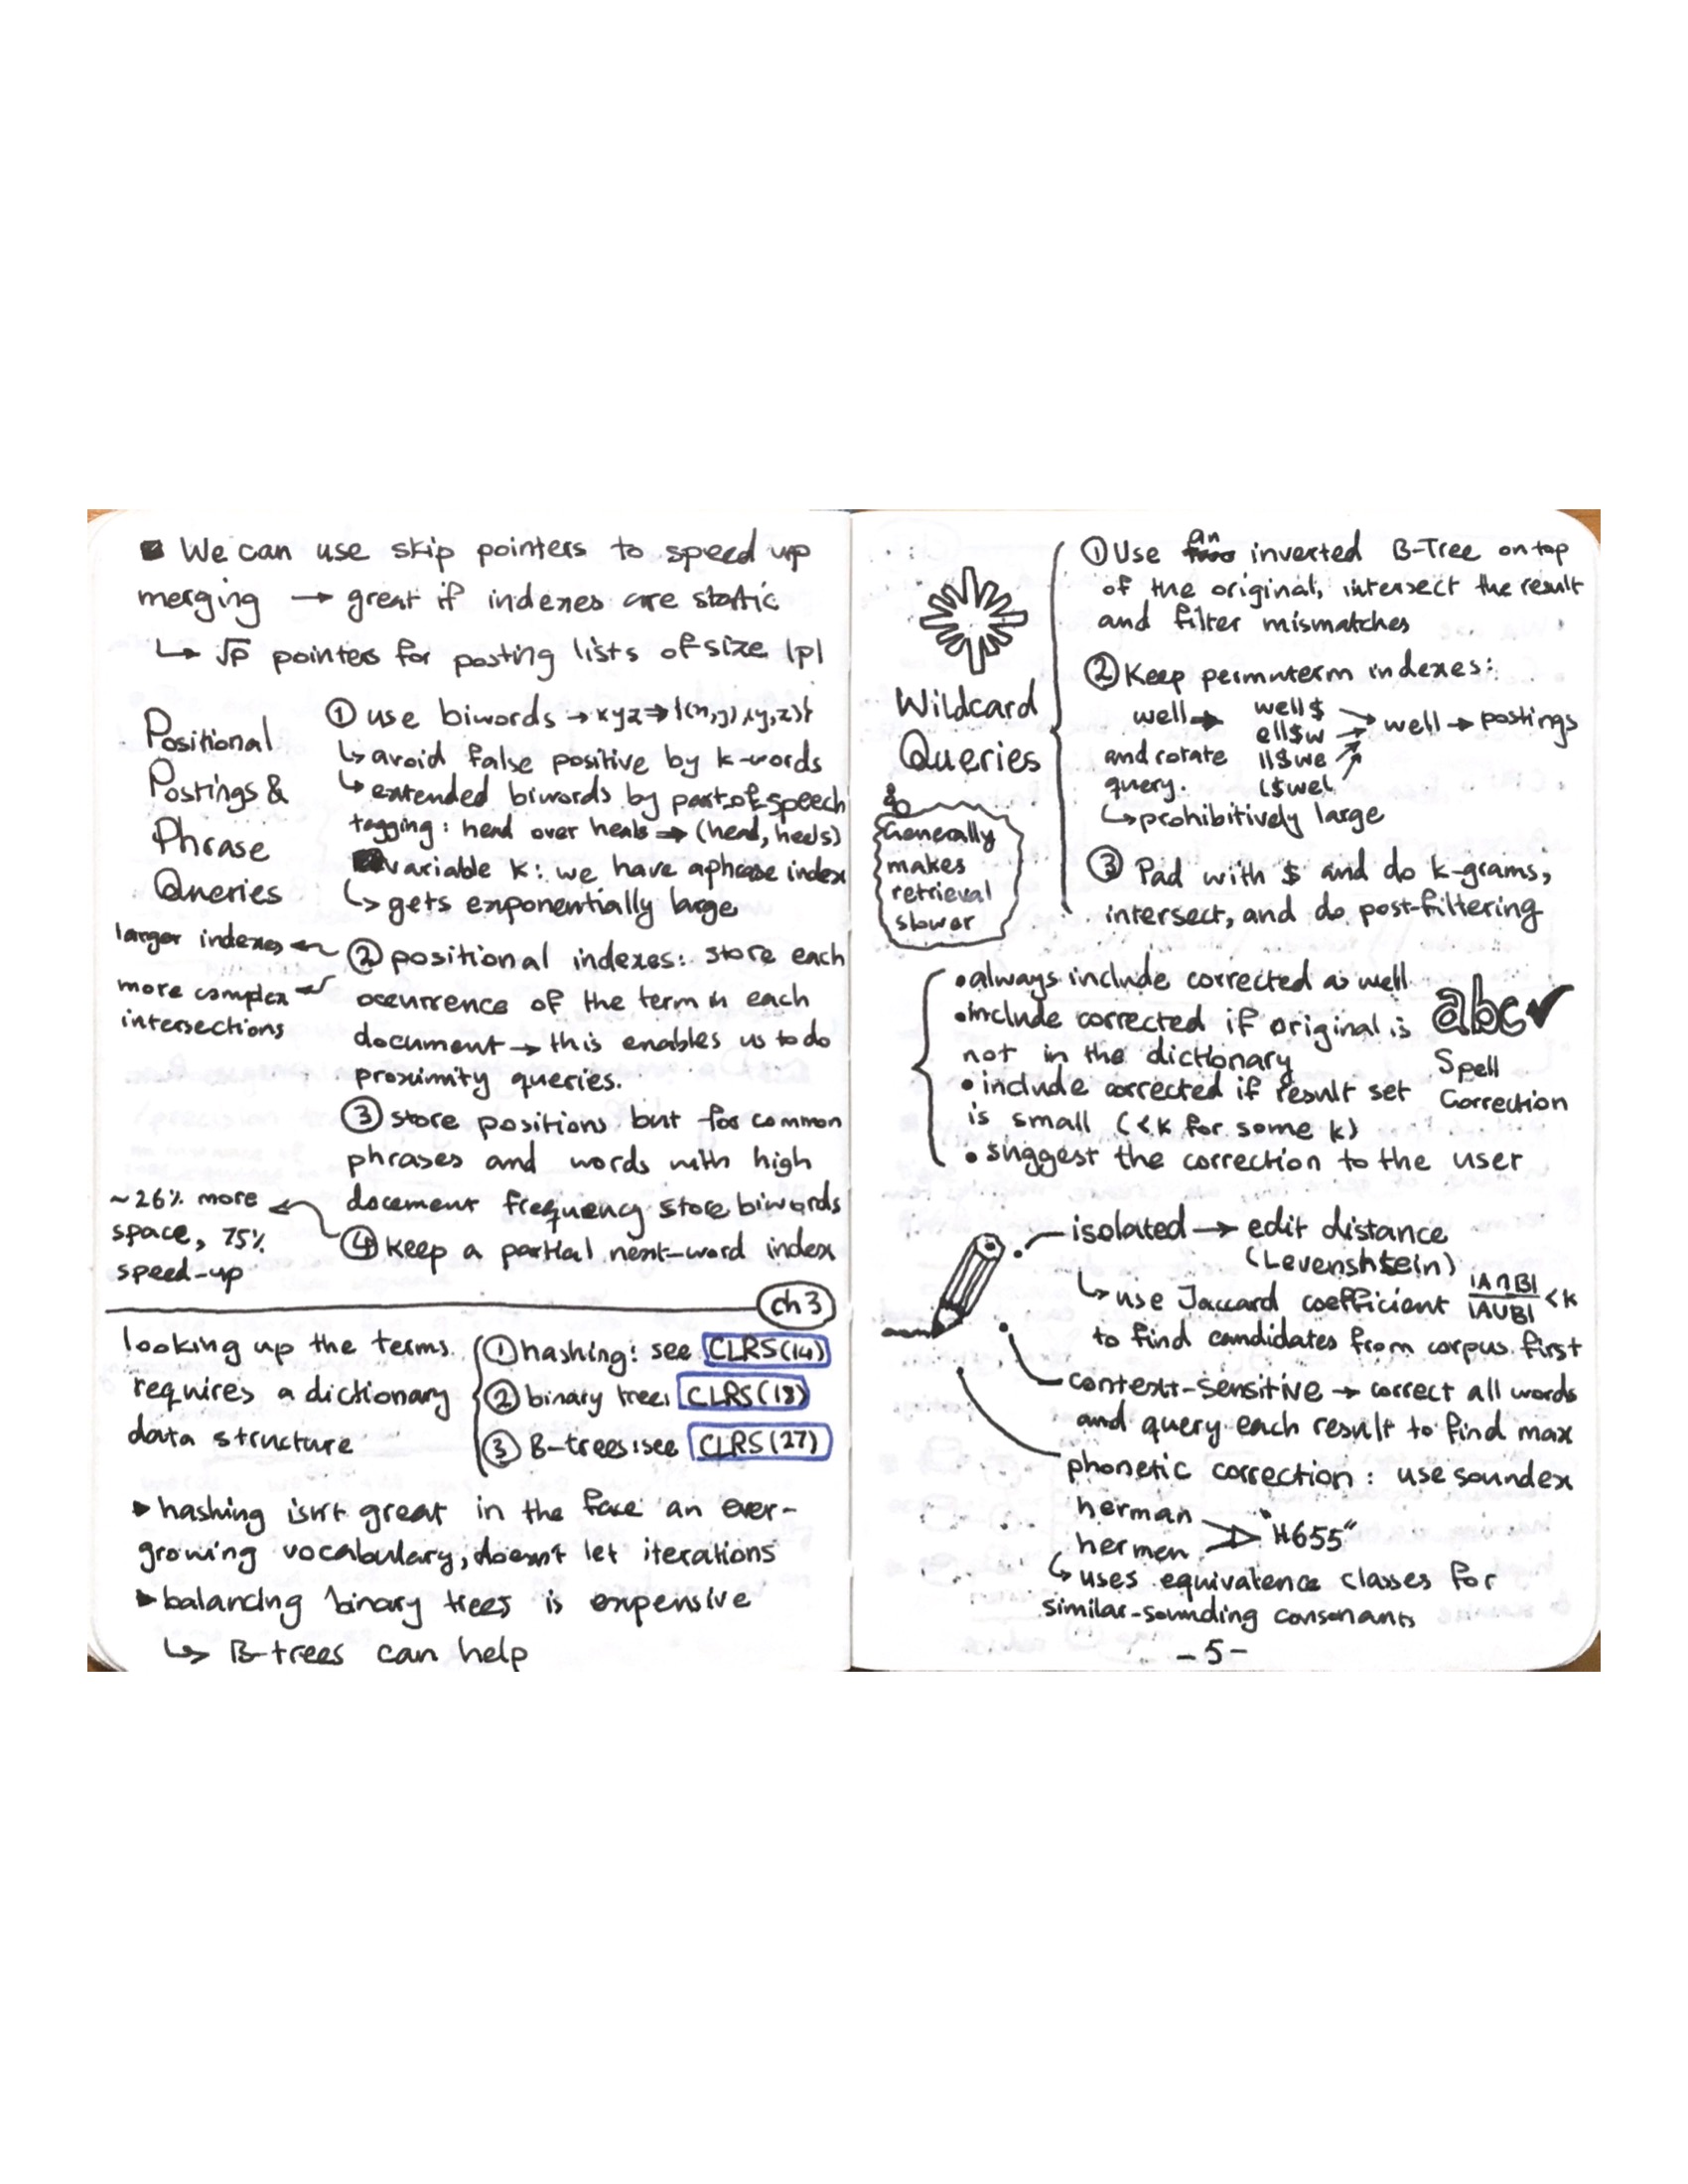 ■ We can use skip pointers to speed up
merging → great if indexes are static
↳ √p pointers for posting lists of size |p|
Positional
Postings &
Phrase
Queries
① use biwords → xyz ⇒ {(x,y),(y,z)}
↳ avoid false positive by k-words
↳ extended biwords by part-of-speech
tagging: head over heals ⇒ (head, heels)
variable k: we have a phrase index
↳ gets exponentially large
larger indexes
more complex
intersections
② positional indexes: store each
occurrence of the term in each
document → this enables us to do
proximity queries.
③ store positions but for common
phrases and words with high
document frequency store biwords
④ keep a partial next-word index
~26% more
space, 75%
speed-up
ch3
looking up the terms
requires a dictionary
data structure
① hashing: see CLRS(14)
② binary tree: CLRS(18)
③ B-trees: see CLRS(27)
▸ hashing isn't great in the face an ever-
growing vocabulary, doesn't let iterations
▸ balancing binary trees is expensive
↳ B-trees can help
Wildcard
Queries
Generally
makes
retrieval
slower
① Use an inverted B-Tree on top
of the original, intersect the result
and filter mismatches
② Keep permuterm indexes:
well → well$ → well → postings
ell$w
and rotate ll$we
query. l$wel
↳ prohibitively large
③ Pad with $ and do k-grams,
intersect, and do post-filtering
• always include corrected as well
• include corrected if original is
not in the dictionary
• include corrected if result set
is small (<k for some k)
• suggest the correction to the user
abc✔
Spell
Correction
isolated → edit distance
(Levenshtein)
↳ use Jaccard coefficient |A∩B|/|A∪B| < k
to find candidates from corpus first
context-sensitive → correct all words
and query each result to find max
phonetic correction: use soundex
herman
hermen > "H655"
↳ uses equivalence classes for
similar-sounding consonants
-5-